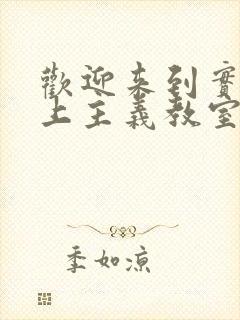 歡迎來到實
上主義教室
季如涼